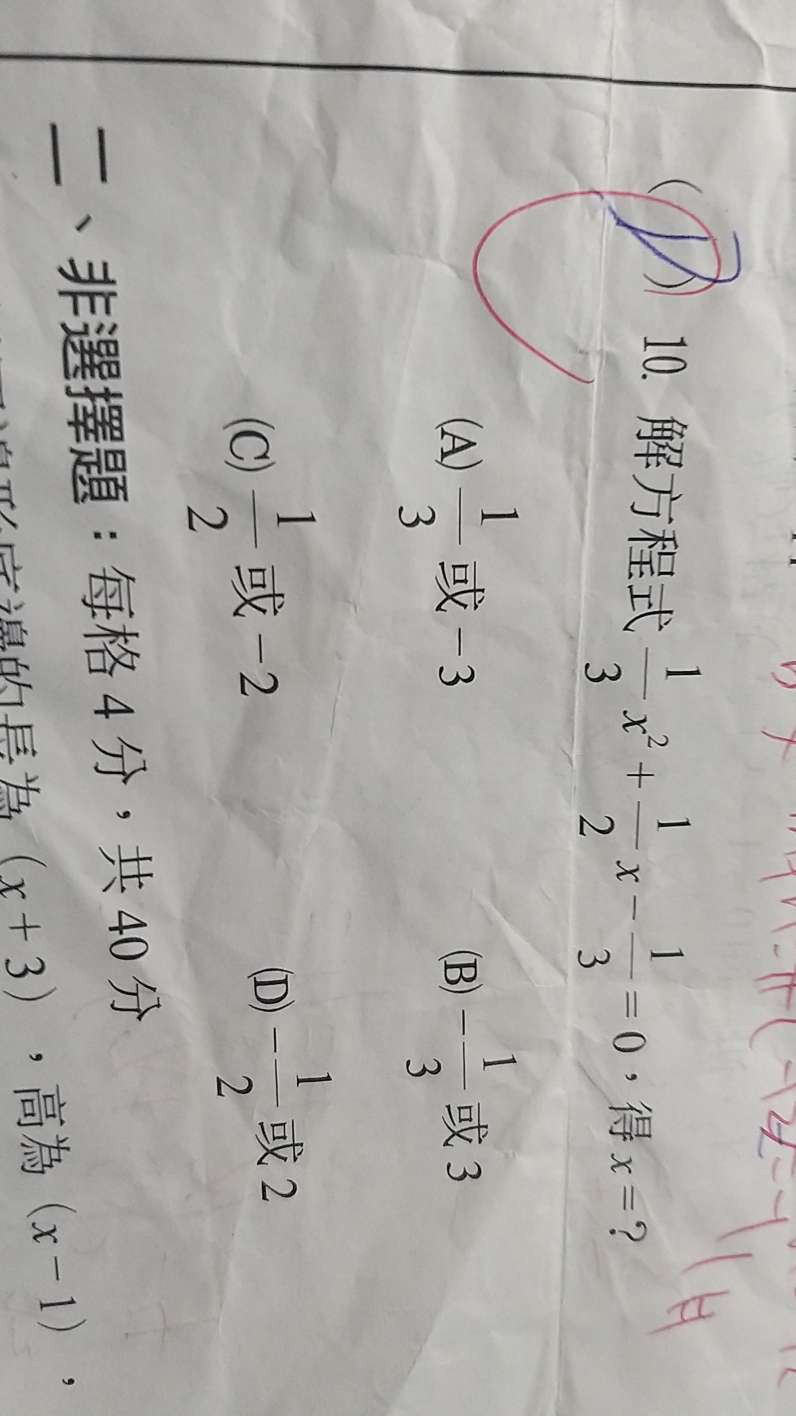 ( D ) 10. 解方程式 1/3 x² + 1/2 x - 1/3 = 0，得 x = ?
(A) 1/3 或 -3 (B) - 1/3 或 3
(C) 1/2 或 -2 (D) - 1/2 或 2
二、非選擇題：每格 4 分，共 40 分
底邊的長為 (x+3)，高為 (x-1)，